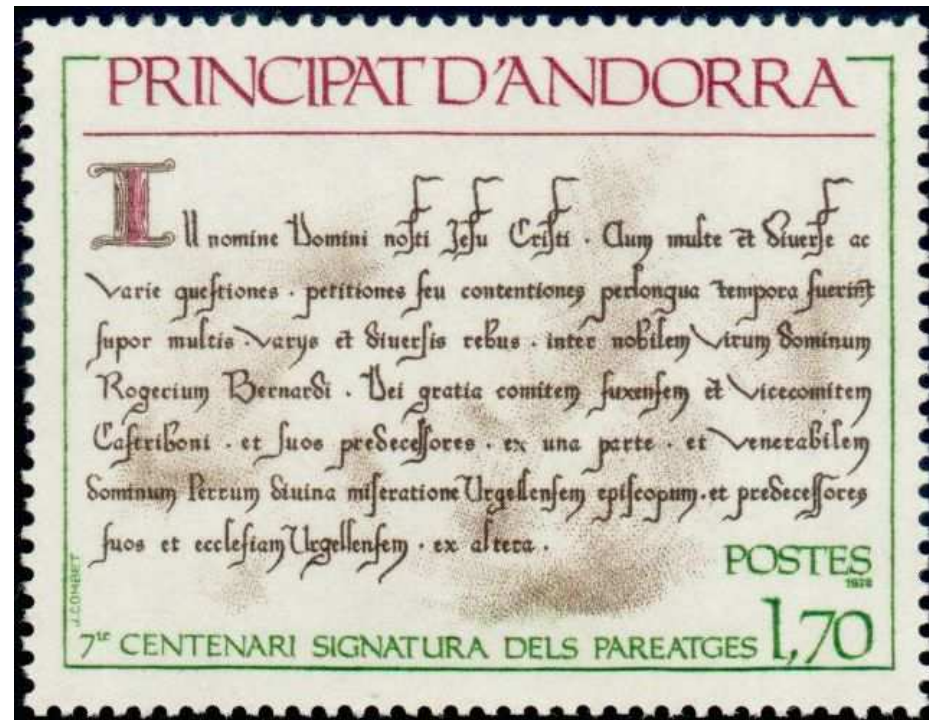 PRINCIPAT D'ANDORRA
In nomine Domini nosti Jesu Cristi . Cum multe et diverse ac
varie questiones . petitiones seu contentiones perlongua tempora fuerint
supor multis . varys et diversis rebus . inter nobilem virum dominum
Rogerium Bernardi . Dei gratia comitem fuxensem et vicecomitem
Castriboni . et suos predecessores . ex una parte . et venerabilem
dominum Petrum divina miseratione Urgellensem episcopum . et predecessores
suos et ecclesiam Urgellensem . ex altera .
POSTES
1978
J.COMBET
7te CENTENARI SIGNATURA DELS PAREATGES 1,70